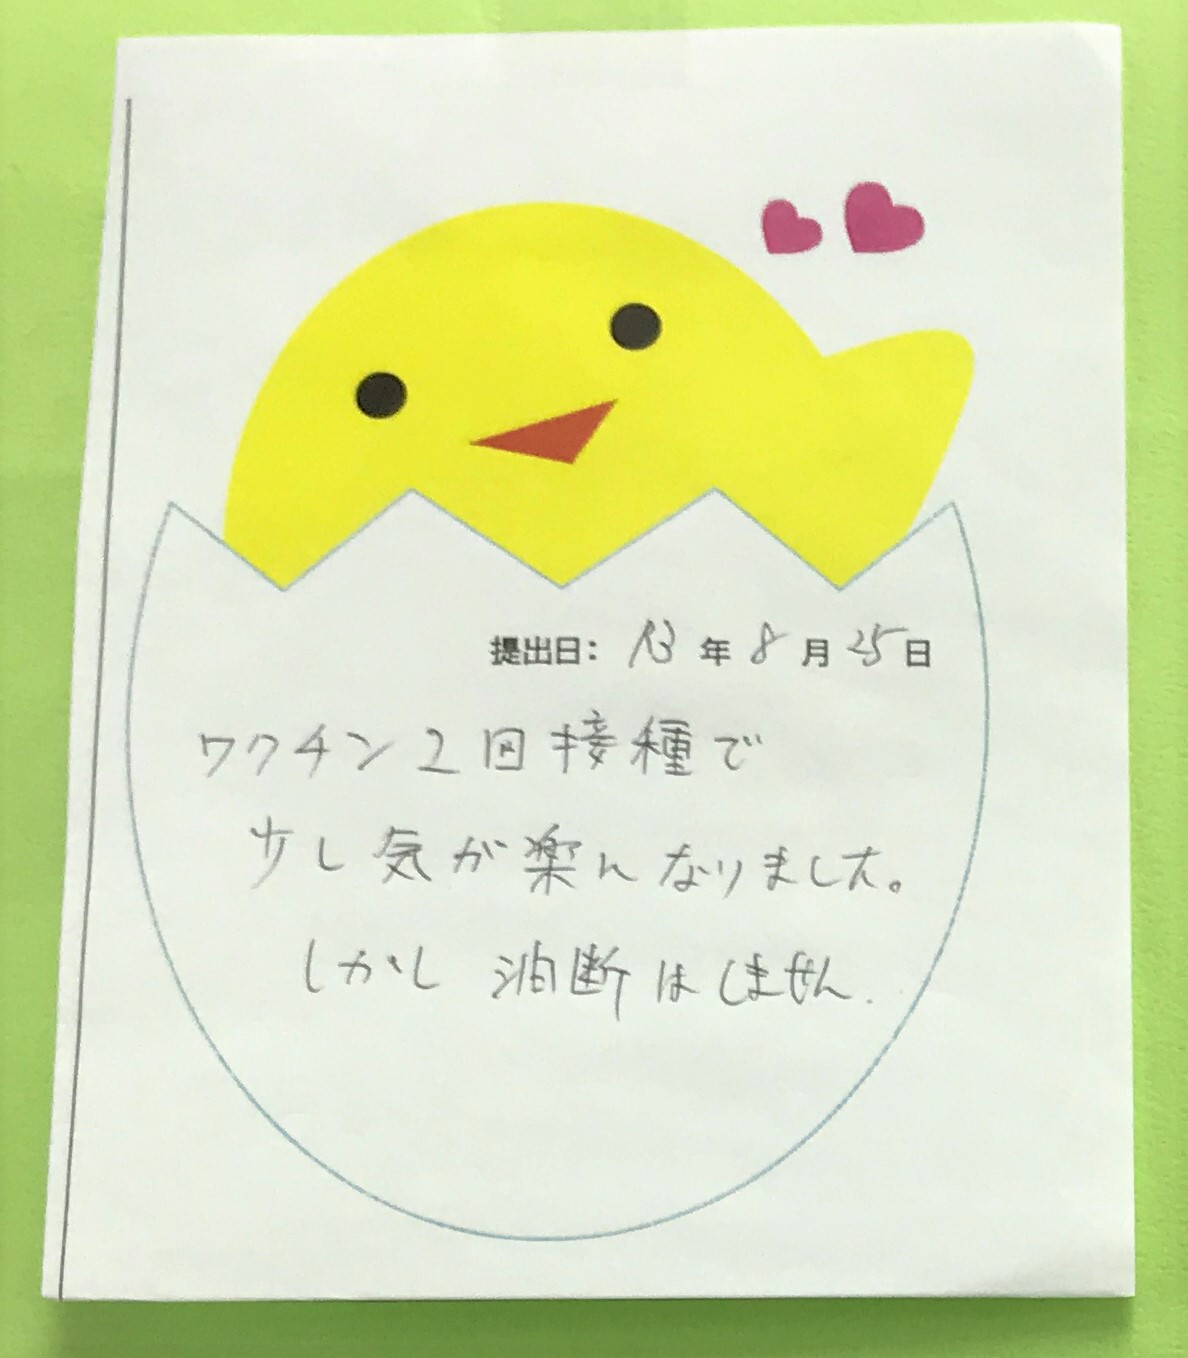 提出日: R3 年 8 月 25 日
ワクチン2回接種で
少し気が楽になりました。
しかし油断はしません.